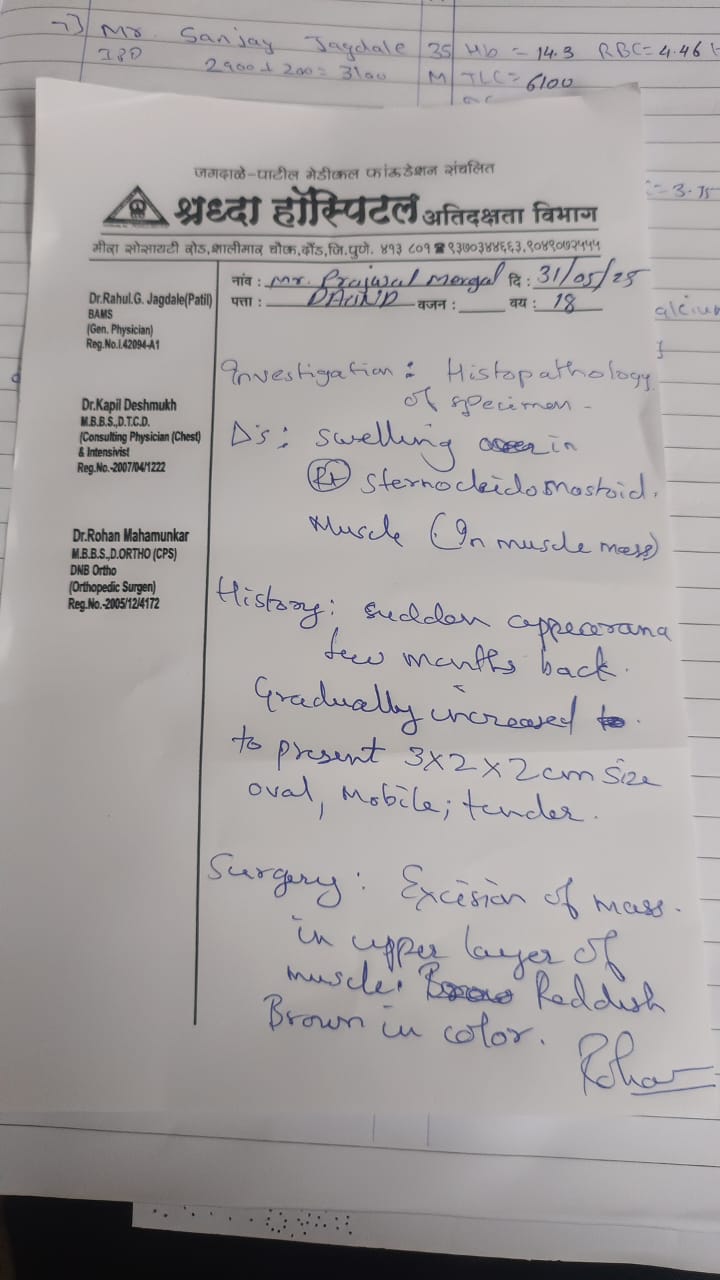 7) Mr. Sanjay Jagdale 35 Hb = 14.3 RBC = 4.46
IPD 2900 + 200 = 3100 M TLC = 6100
= 3.75
जगदाळे-पाटील मेडीकल फांऊडेशन संचलित
श्रध्दा हॉस्पिटल अतिदक्षता विभाग
मीरा सोसायटी रोड,शालीमार चौक,दौंड,जि.पुणे. ४१३ ८०१ ☎९३७०३४४६६३,९०४९०७२५५५
नांव : Mr. Prajwal Mergal दि : 31/05/25
पत्ता : DAUND वजन : वय : 18
Dr.Rahul.G. Jagdale(Patil)
BAMS
(Gen. Physician)
Reg.No.I.42094-A1
Dr.Kapil Deshmukh
M.B.B.S.,D.T.C.D.
(Consulting Physician (Chest)
& Intensivist
Reg.No.-2007/04/1222
Dr.Rohan Mahamunkar
M.B.B.S.,D.ORTHO (CPS)
DNB Ortho
(Orthopedic Surgen)
Reg.No.-2005/12/4172
Investigation : Histopathology
of specimen -
D's : swelling in
Rt sternocleidomastoid.
Muscle (In muscle mass)
History : sudden appearana
few months back.
Gradually increased
to present 3x2x2cm size
oval, mobile; tender.
Surgery : Excision of mass.
in upper layer of
muscle. Reddish
Brown in color.
Rohan